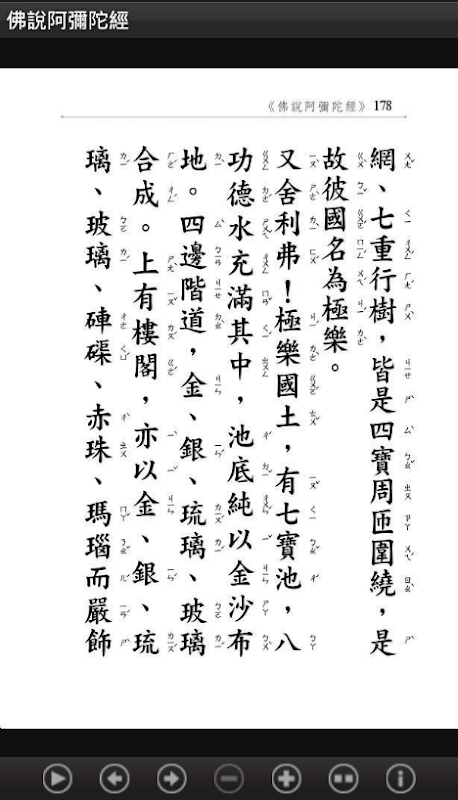 佛說阿彌陀經
《佛說阿彌陀經》 178
網、七重行樹，皆是四寶周匝圍繞，是
故彼國名為極樂。
又舍利弗！極樂國土，有七寶池，八
功德水充滿其中，池底純以金沙布
地。四邊階道，金、銀、琉璃、玻璃
合成。上有樓閣，亦以金、銀、琉
璃、玻璃、硨磲、赤珠、瑪瑙而嚴飾